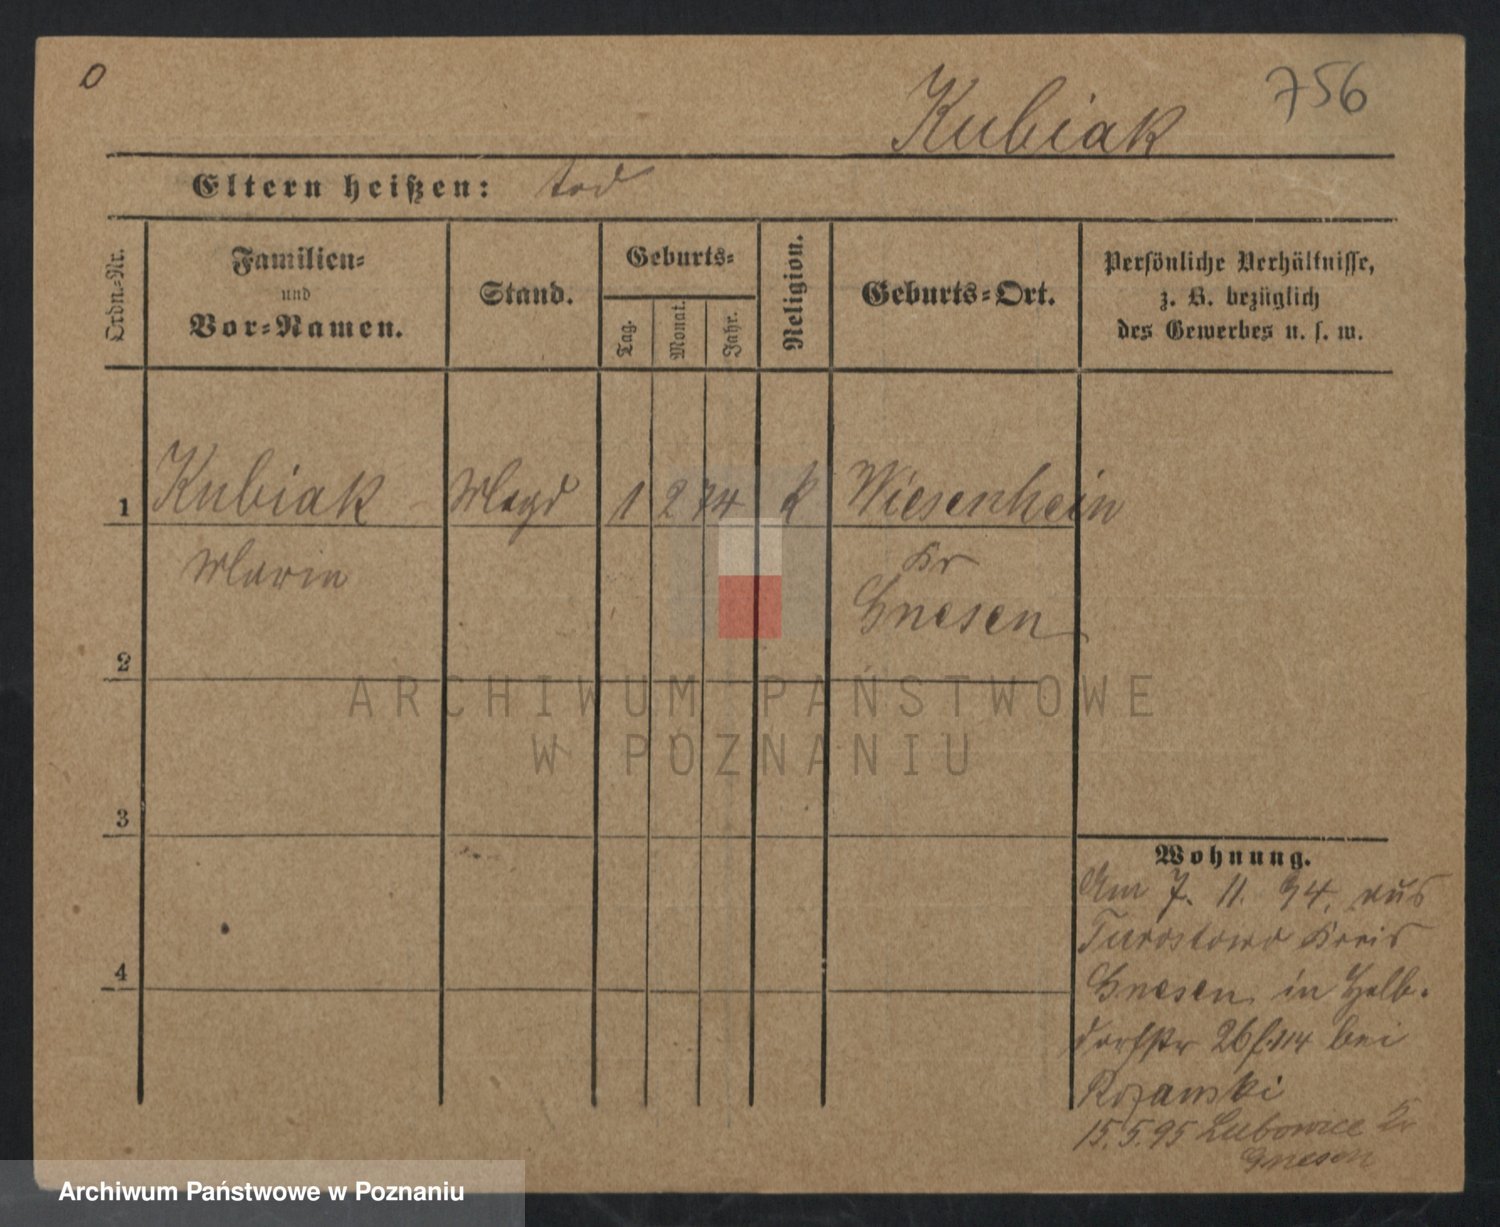 0
756
Kubiak
Eltern heißen: tod
Ordn.-Nr.
Familien-
und
Vor-Namen.
Stand.
Geburts-
Tag.
Monat.
Jahr.
Religion.
Geburts-Ort.
Persönliche Verhältnisse,
z. B. bezüglich
des Gewerbes u. s. w.
1 Kubiak Magd 1 2 74 k Wiesenhein
Marie Kr
Gnesen
2
3
4
Wohnung.
Am 7. 11. 94. aus
Turostowo Kreis
Gnesen in Halb-
dorfstr 26 bei
Rozanski
15.5.95 Lubowice Kr
Gnesen
ARCHIWUM PAŃSTWOWE
W POZNANIU
Archiwum Państwowe w Poznaniu